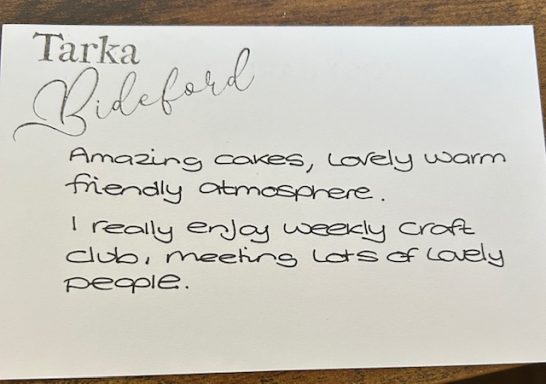 Tarka
Bideford
Amazing cakes, Lovely warm
friendly atmosphere.
I really enjoy weekly craft
club, meeting lots of lovely
people.